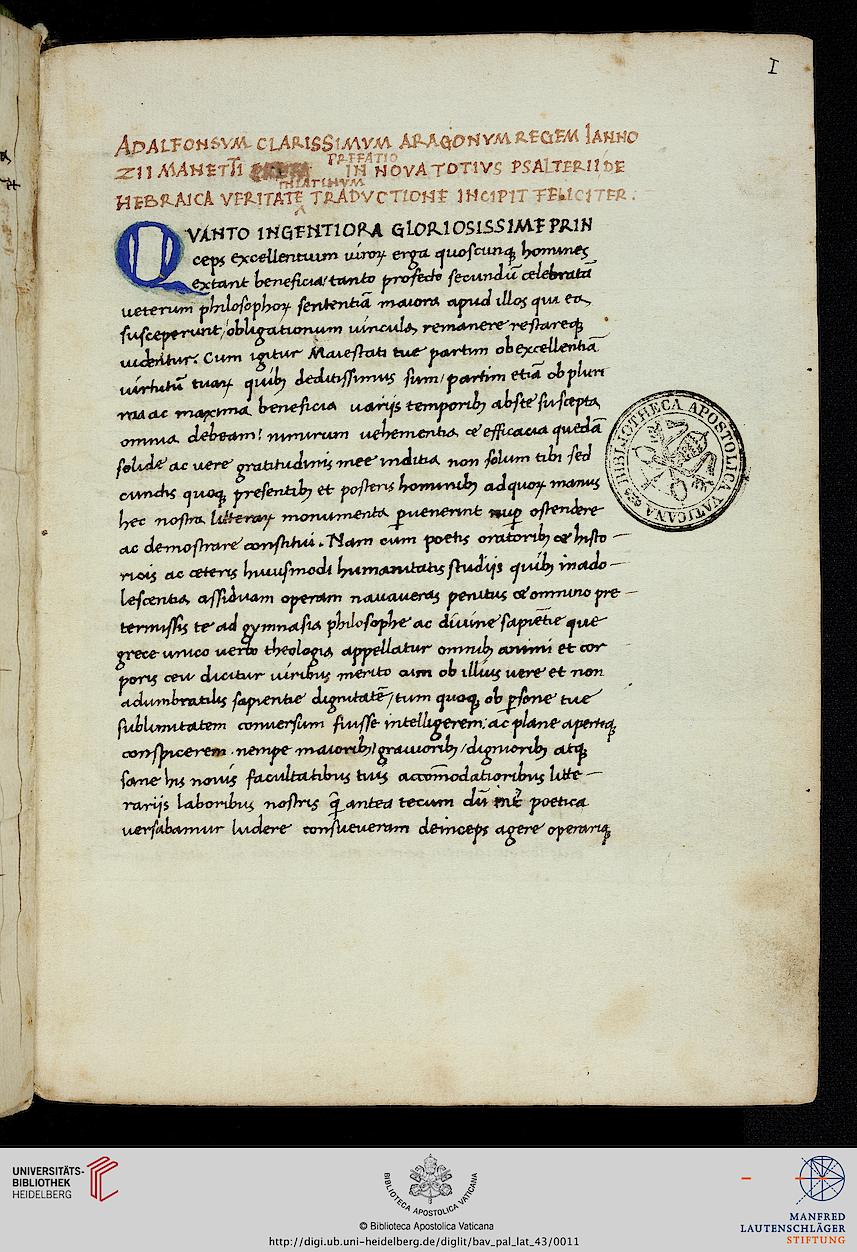 I
AD ALFONSVM CLARISSIMVM ARAGONVM REGEM IANNO
PREFATIO
ZII MANETTI IN NOVA TOTIVS PSALTERII DE
IN LATINVM
HEBRAICA VERITATE TRADVCTIONE INCIPIT FELICITER.
QVANTO INGENTIORA GLORIOSISSIME PRIN
ceps excellentium viroꝝ erga quoscunqꝫ homines
extant beneficia/ tanto profecto secundū celebratā
ueterum philosophoꝝ sententiā maiora apud illos qui ea
susceperunt/ obligationum uincula remanere restareqꝫ
uidentur. Cum igitur Maiestati tue partim ob excellentiā
uirtutū tuaꝝ quibꝫ deditissimus sum/ partim etiā ob pluri
ma ac maxima beneficia uarijs temporibꝫ abs te suscepta
omnia debeam: nimirum uehementia ac efficacia quedā
solide ac vere gratitudinis mee inditia non solum tibi sed
cunctis quoqꝫ presentibꝫ et posteris hominibꝫ ad quoꝝ manus
hec nostra litteraꝝ monumenta ꝑuenerint nuꝑ ostendere
ac demostrare constitui. Nam cum poetis oratoribꝫ ac histo-
ricis ac ceteris huiusmodi humanitatis studijs quibꝫ in ado-
lescentia assiduam operam nauaueras penitus ac omnino pre-
termissis te ad gymnasia philosophe ac diuine sapiētie que
grece unico uerbo theologia appellatur omnibꝫ animi et cor
poris ceu dicitur uiribus merito cum ob illius uere et non
adumbratilis sapientie dignitatē/ tum quoqꝫ ob ꝑsone tue
sublimitatem conuersum fuisse intelligerem: ac plane aperteqꝫ
conspicerem. nempe maioribꝫ/ grauioribꝫ/ dignioribꝫ atqꝫ
sane his nouis facultatibus tuis accōmodatioribus litte-
rarijs laboribus nostris antea tecum dū poetica
versabamur ludere consueueram deinceps agere operariqꝫ
BIBLIOTHECA APOSTOLICA VATICANA
UNIVERSITÄTS-
BIBLIOTHEK
HEIDELBERG
BIBLIOTECA APOSTOLICA VATICANA
© Biblioteca Apostolica Vaticana
http://digi.ub.uni-heidelberg.de/diglit/bav_pal_lat_43/0011
MANFRED
LAUTENSCHLÄGER
STIFTUNG